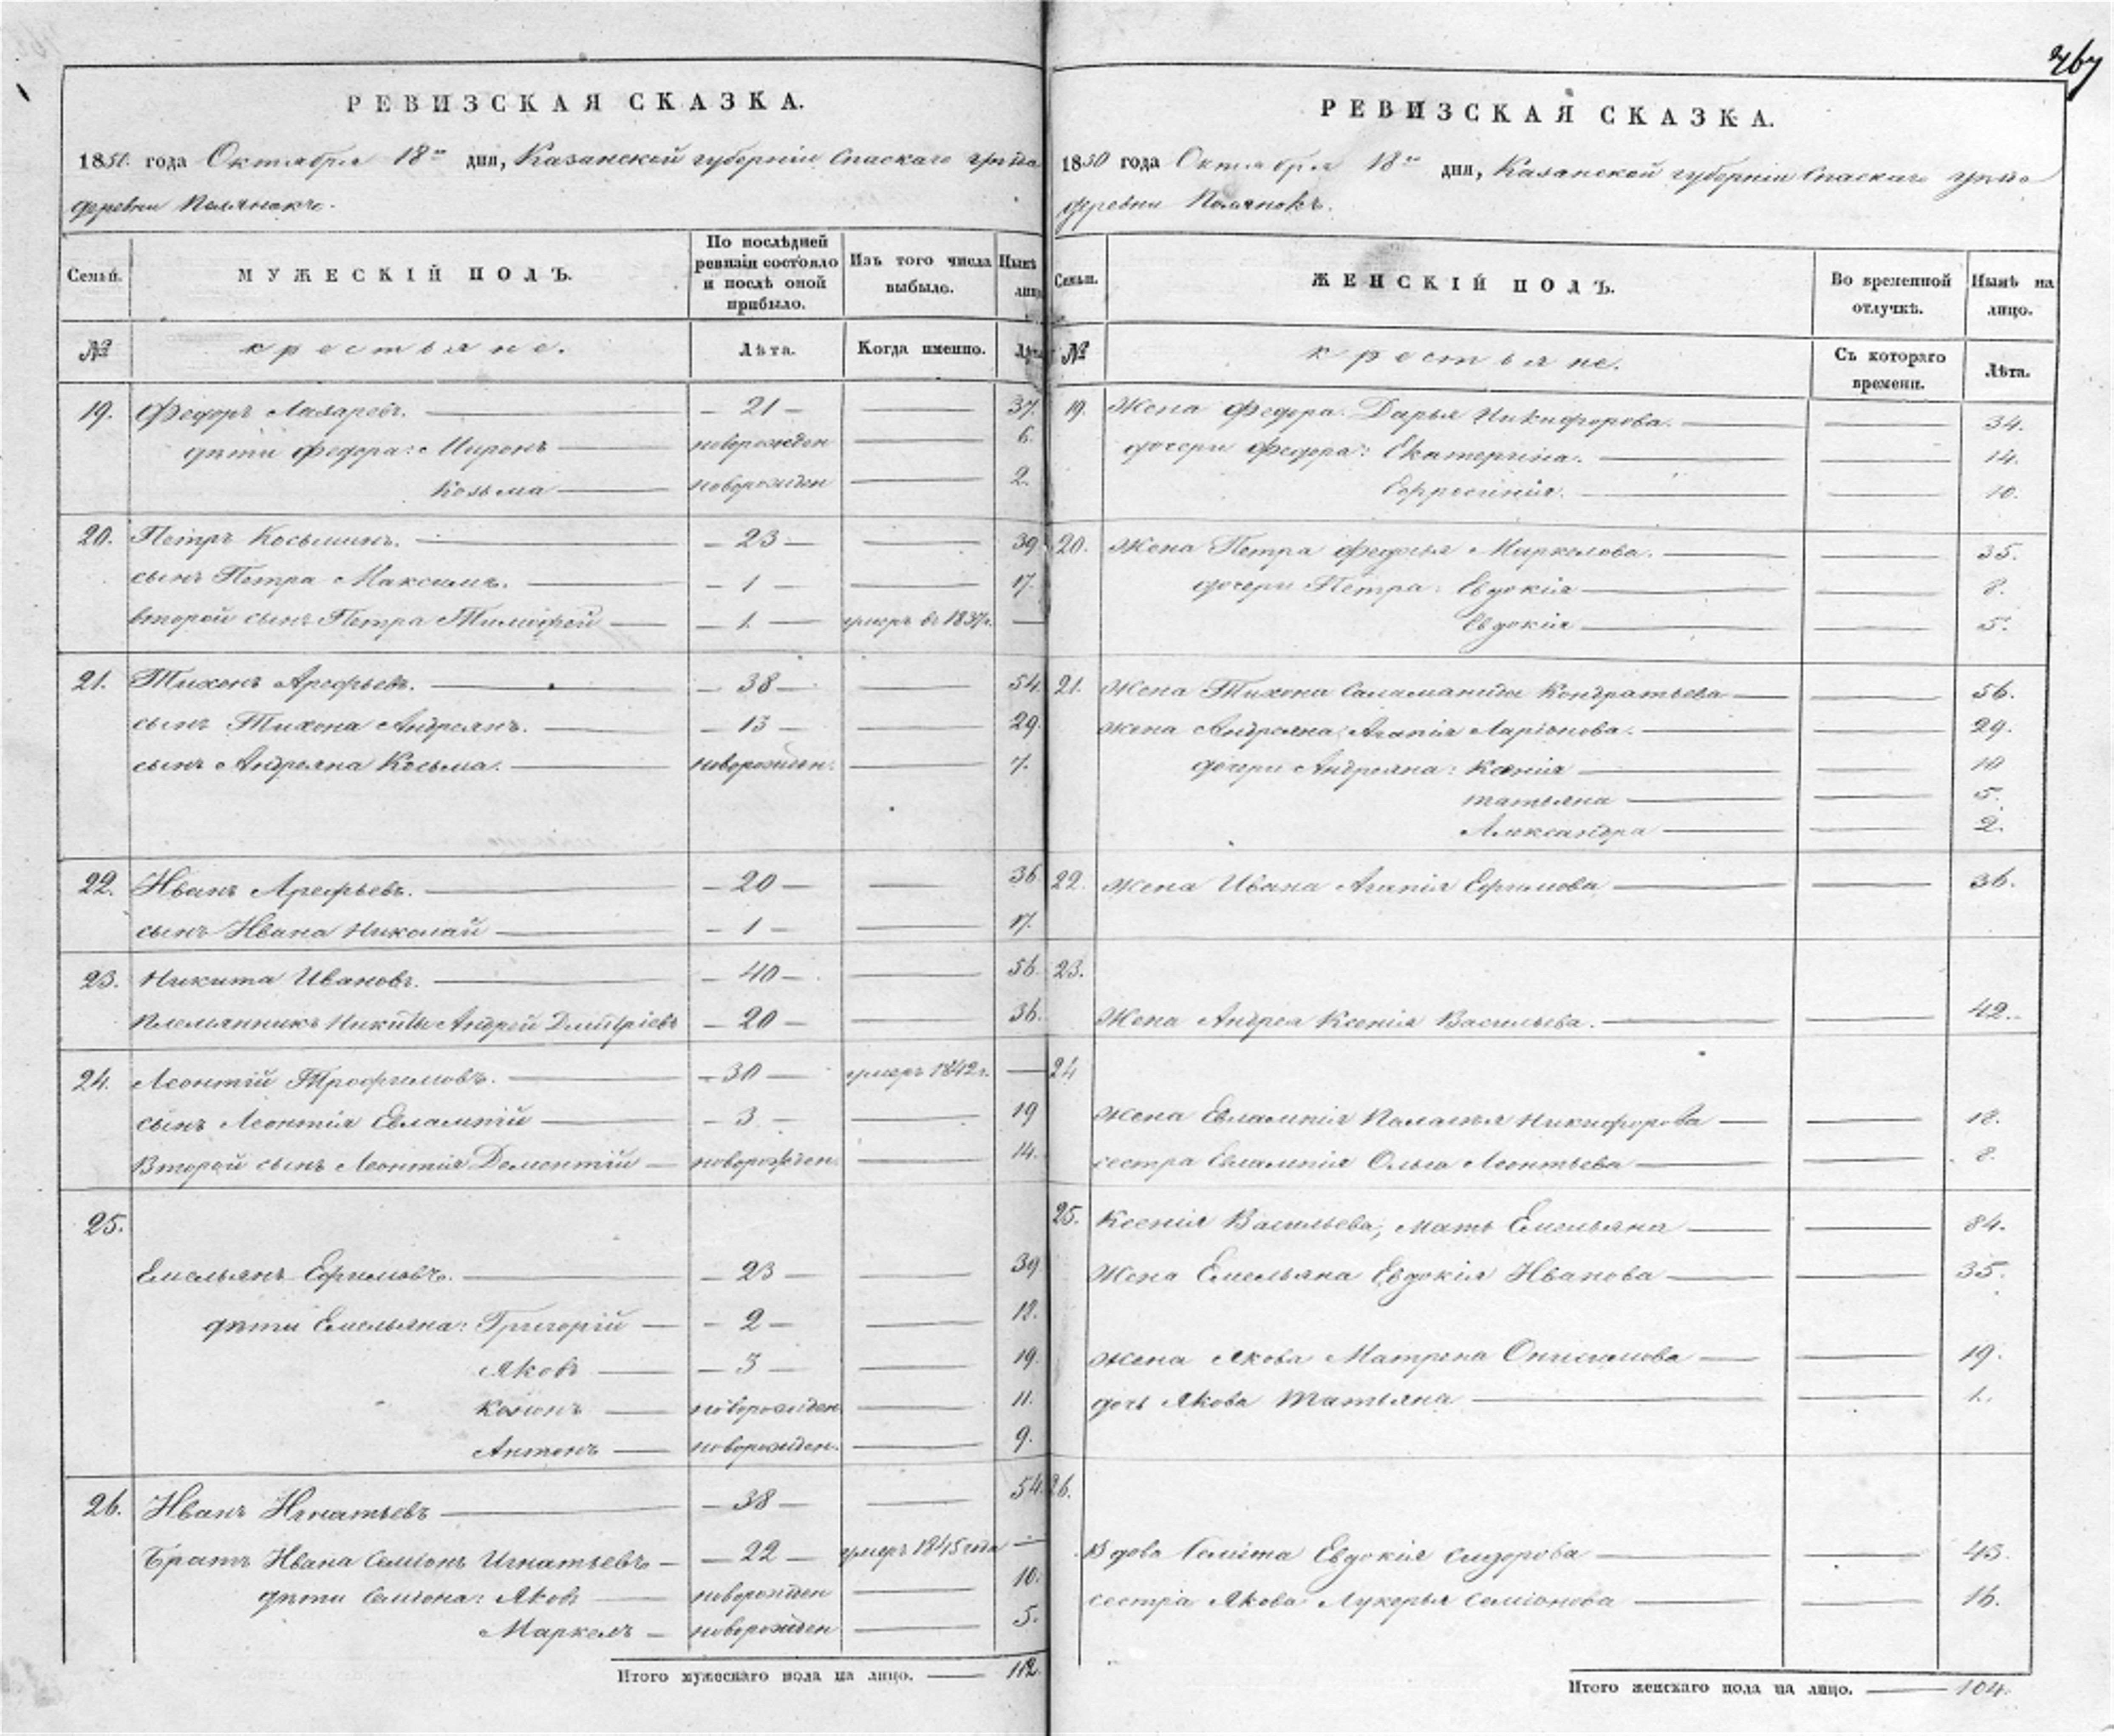 РЕВИЗСКАЯ СКАЗКА.
1850 года Октября 18го дня, Казанской губерніи Спаскаго уѣзда
деревни Полянокъ.
Семьи. МУЖЕСКІЙ ПОЛЪ. По послѣдней ревизіи состояло и послѣ оной прибыло. Изъ того числа выбыло. Нынѣ лицо
№ крестьяне. Лѣта. Когда именно. Лѣта
19. Федоръ Лазаревъ. — 21 — — 37.
дѣти Федора: Миронъ — новорожден — 6.
Козьма — новорожден — 2.
20. Петръ Косьминъ. — 23 — — 39
сынъ Петра Максимъ. — 1 — — 17.
второй сынъ Петра Тимофей — 1. — умеръ въ 1837г. —
21. Тихонъ Арефьевъ. — 38 — — 54.
сынъ Тихона Андреянъ. — 13 — — 29.
сынъ Андреяна Косьма. — новорожден. — 7.
22. Иванъ Арефьевъ. — 20 — — 36
сынъ Ивана Николай — 1 — — 17.
23. Никита Ивановъ. — 40 — — 56.
Племянникъ Никиты Андрей Дмитріевъ — 20 — — 36.
24. Леонтій Трофимовъ. — 30 — умеръ 1842г. —
сынъ Леонтія Евлампій — 3 — — 19
Второй сынъ Леонтія Дементій — новорожден — 14.
25.
Емельянъ Ефимовъ. — 23 — — 39
дѣти Емельяна: Григорій — 2 — — 18.
Яковъ — 3 — — 19.
новорожден — 11.
Антонъ — новорожден. — 9.
26. Иванъ Игнатьевъ — 38 — — 54.
Братъ Ивана Семіонъ Игнатьевъ — 22 — умеръ 1845 года —
дѣти Семіона: Яковъ — новорожден — 10.
Маркелъ — новорожден — 5.
Итого мужескаго пола на лицо. — 112.
767
РЕВИЗСКАЯ СКАЗКА.
1850 года Октября 18го дня, Казанской губерніи Спаскаго уѣзда
деревни Полянокъ.
Семьи. ЖЕНСКІЙ ПОЛЪ. Во временной отлучкѣ. Нынѣ на лицо.
№ крестьяне. Съ котораго времени. Лѣта.
19. Жена Федора Дарья Никифорова. — — 34.
дочери Федора: Екатерина. — — 14.
Ефросинія. — — 10.
20. Жена Петра Федосья Маркелова. — — 35.
дочери Петра: Евдокія — — 8.
Евдокія — — 5.
21. Жена Тихона Саломанида Кондратьева — — 56.
жена Андреяна Агапія Ларіонова. — — 29.
дочери Андреяна: Ксенія — — 10
татьяна — — 5.
Александра — — 2.
22. Жена Ивана Агапія Ефимова — — 36.
23.
Жена Андрея Ксенія Васильева. — — 42.
24
Жена Евлампія Палагья Никифорова — — 18.
сестра Евлампія Ольга Леонтьева — — 8.
25. Ксенія Васильева, мать Емельяна — — 84.
Жена Емельяна Евдокія Иванова — — 35.
Жена Якова Матрена Онисимова — — 19.
дочь Якова Татьяна — — 1.
26.
Вдова Евдокія Сидорова — — 43.
сестра Якова Лукерья Семіонова — — 16.
Итого женскаго пола на лицо. — 104.